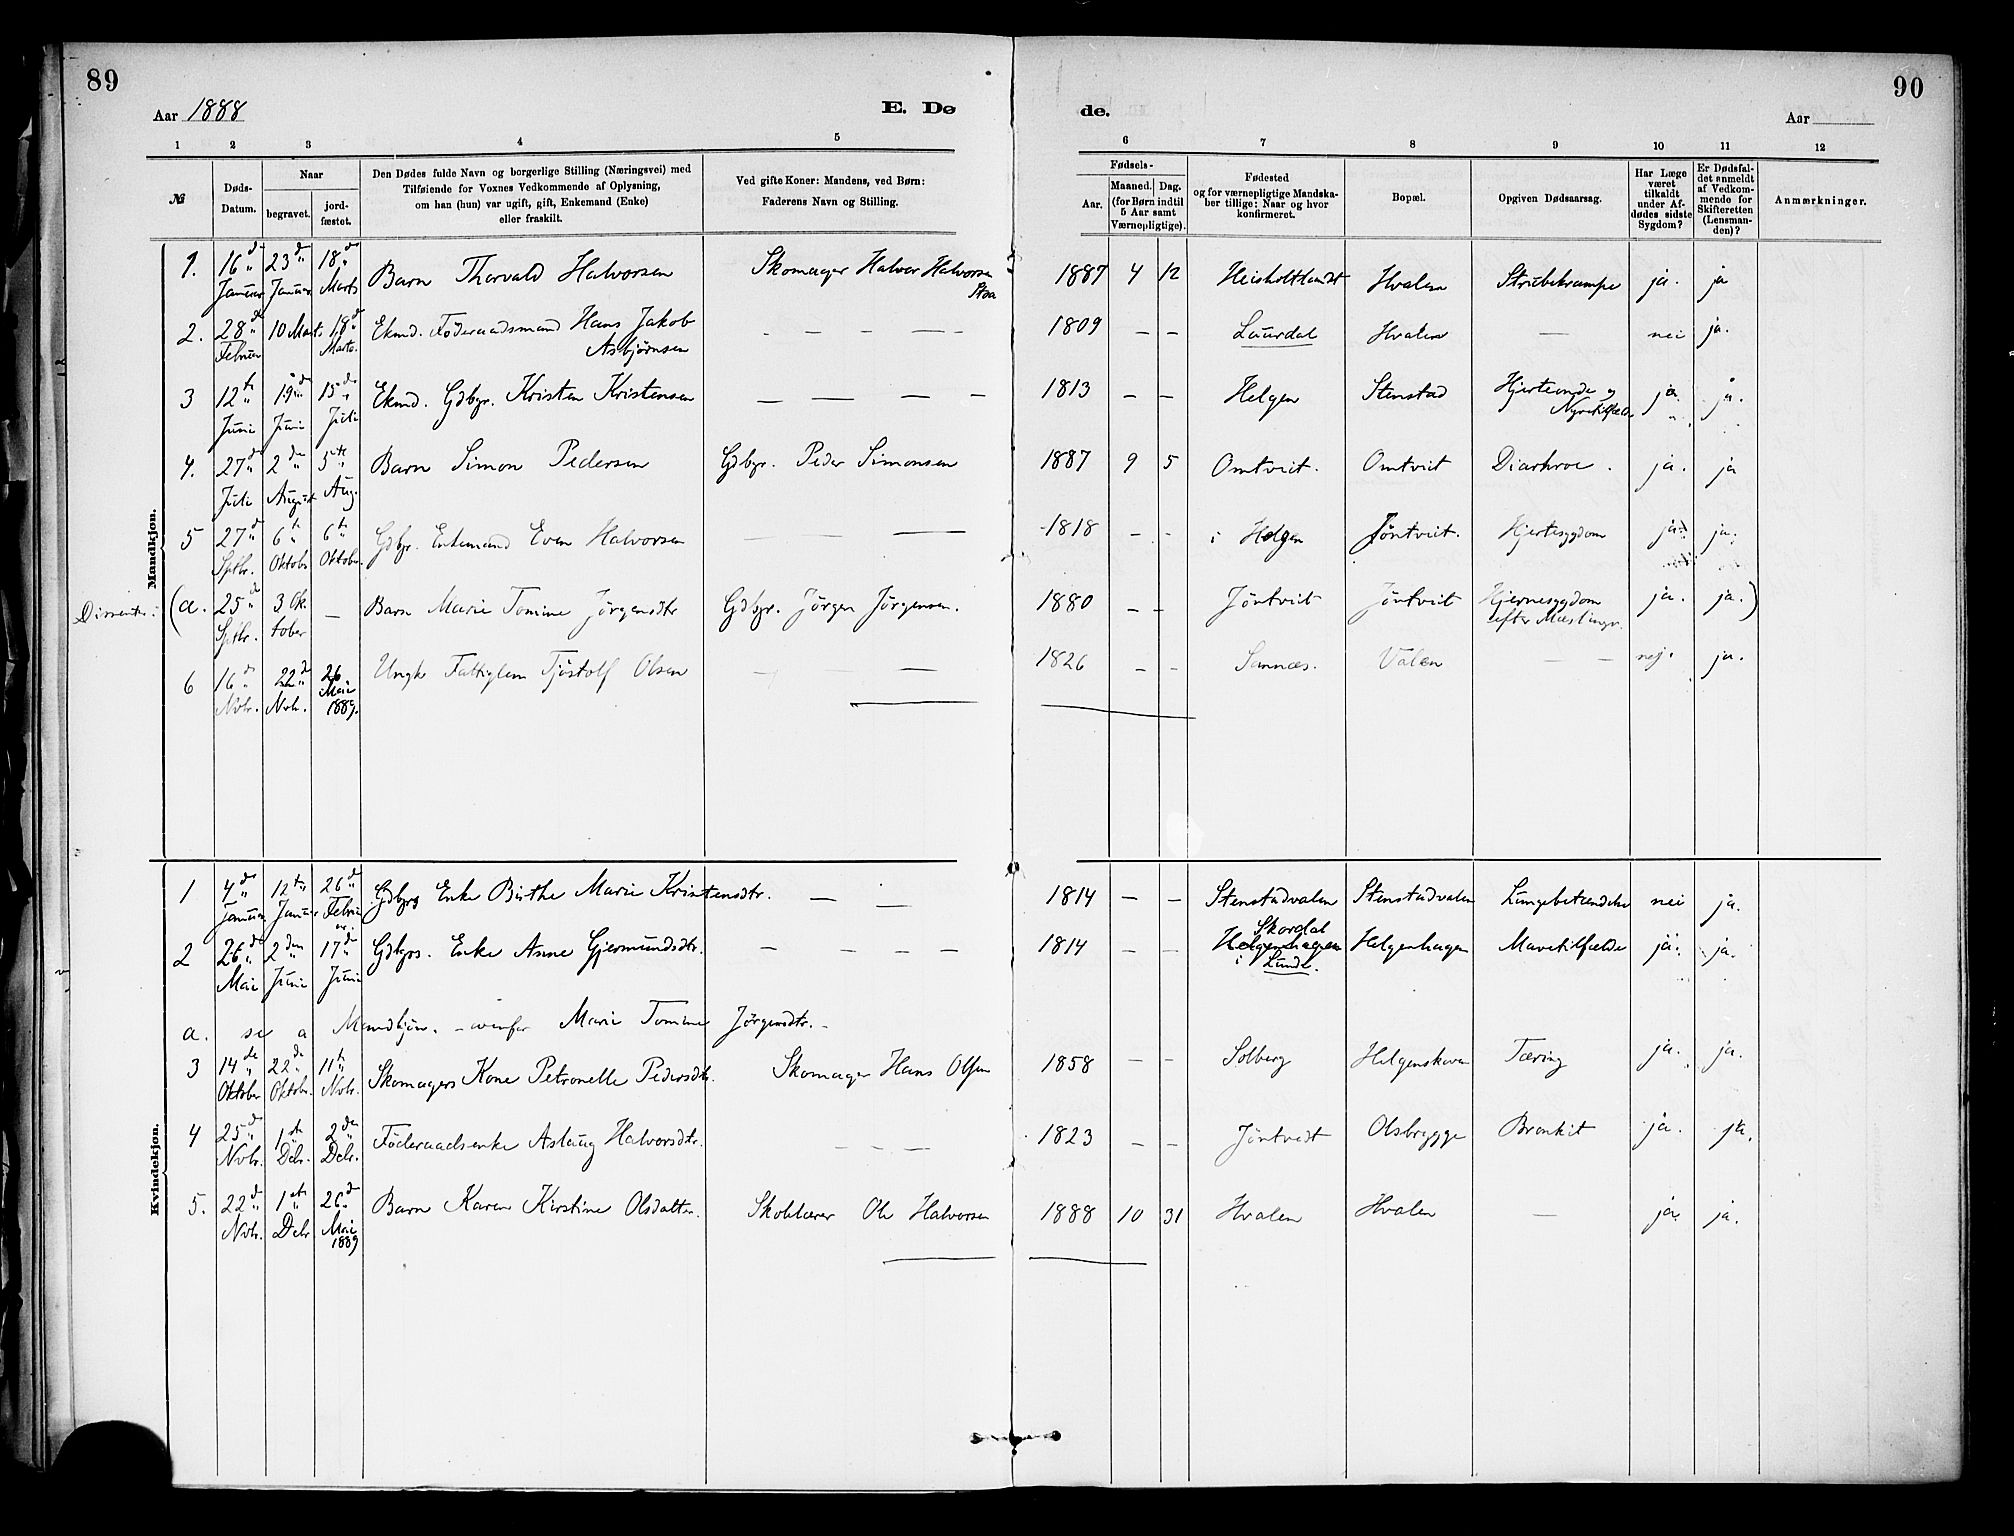 89
90
Aar 1888
E. Dø
de.
Aar
1 2 3 4 5 6 7 8 9 10 11 12
№
Døds-Datum.
Naar
begravet.
jord-fæstet.
Den Dødes fulde Navn og borgerlige Stilling (Næringsvei) med
Tilføiende for Voxnes Vedkommende af Oplysning,
om han (hun) var ugift, gift, Enkemand (Enke)
eller fraskilt.
Ved gifte Koner: Mandens, ved Børn:
Faderens Navn og Stilling.
Fødsels-
Aar.
Maaned. Dag.
(for Børn indtil
5 Aar samt
Værnepligtige).
Fødested
og for værnepligtige Mandska-
ber tillige: Naar og hvor
konfirmeret.
Bopæl.
Opgiven Dødsaarsag.
Har Læge
været
tilkaldt
under Af-
dødes sidste
Sygdom?
Er Dødsfal-
det anmeldt
af Vedkom-
mende for
Skifteretten
(Lensman-
den)?
Anmærkninger.
Mandkjøn.
1. 16 d Januar 23 d Januar 18 d Marts Barn Thorvald Halvorsen Skomager Halvor Halvorsen 1887 4 12 Heisholtlandt Hvalen Strubekrampe ja. ja
2. 28 d Februar 10 Mart. 18 d Marts. Ekmd. Föderaadsmand Hans Jakob Asbjørnsen — — — — 1809 — — Laurdal Hvalen — nei ja.
3 12 te Juni 19 d Juni 15 de Juli Ekmd. Gdbgr. Kristen Kristensen — — — — 1813 — — Helgen Stenstad Hjerteonde og Nyretilfælde ja. ja.
4. 27 d Juli 2 den August 5 te Aug. Barn Simon Pedersen Gdbgr. Peder Simonsen 1887 9 5 Omtveit. Omtveit Diarhroe. ja. ja
5 27 d Sptbr. 6 te Oktobr 6 te Oktober. Gdbgr. Enkemand Even Halvorsen — — — 1818 — - i Helgen Jöntveit. Hjertesygdom ja. ja.
Dissenter: (a. 25 d Sptbr. 3 Oktober — Barn Marie Tomine Jörgensdtr Gdbgr. Jörgen Jörgensen. 1880 — — Jöntveit Jöntveit Hjernesygdom efter Mæslinger. ja. ja.)
6 16 d Novbr. 22 d Nvbr. 26 Mai 1889. Ungk. Fattiglem Tjöstolf Olsen — — 1826 — — Sannæs. Valen — — nej. ja.
Kvindekjøn.
1 4 de Januar 12 te Januar 26 d Februar. Gdbgrs Enke Birthe Marie Kristensdtr. — — 1814 — — Stenstadvalen Stenstadvalen Lungebetændelse nei ja.
2 26 d Mai 2 den Juni 17 d Juni Gdbgrs. Enke Anne Gjermundsdtr. — — — — 1814 — — Skordal Helgenhagen i Lunde. Helgenhagen Mavetilfælde ja. ja.
a. se a Mandkjön. – ovenfor Marie Tomine Jörgensdtr. –
3 14 de Oktober 22 de Oktobr. 11 te Nvbr. Skomagers Kone Petronelle Pedersdtr. Skomager Hans Olsen 1858 — — Solberg Helgenskoven Tæring ja. ja.
4 25 d Nvbr. 1 ste Debr. 2 den Debr. Föderaadsenke Aslaug Halvorsdtr. — — — 1823 — — Jöntvedt Olsbrygge Bronkit ja. ja.
5. 22 d Nvbr. 1 ste Debr 26 d Mai 1889 Barn Karen Kirstine Olsdatter. Skolelærer Ole Halvorsen 1888 10 31 Hvalen Hvalen — ja. ja.